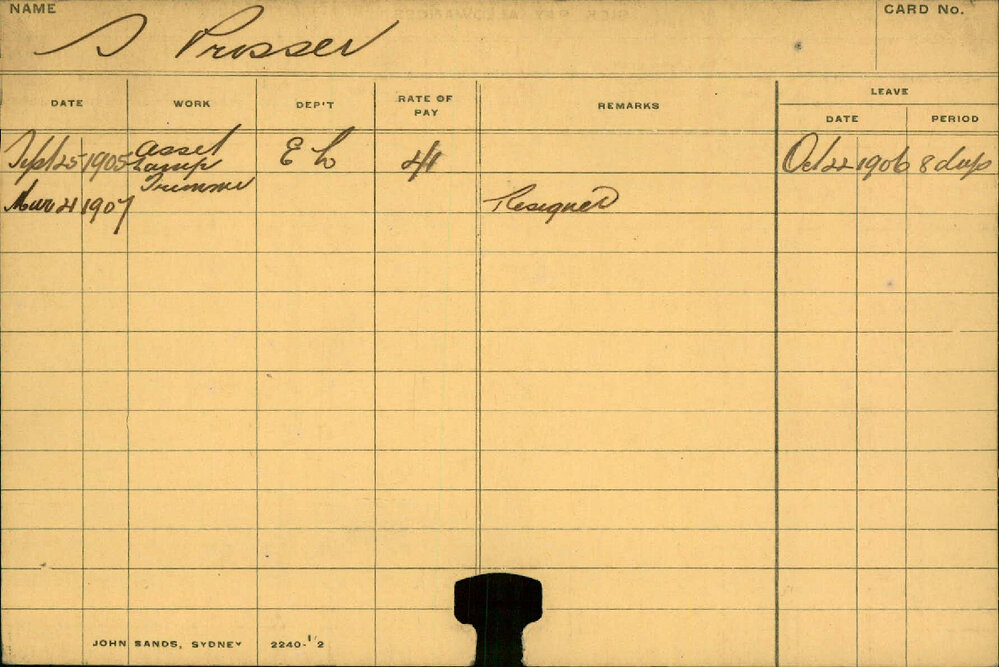 NAME
CARD No.
S Prosser
DATE WORK DEP'T RATE OF PAY REMARKS LEAVE
DATE PERIOD
Sept 25 1905 Asset Lamp Trimmer E L 4/1 Oct 22 1906 8 days
Mar 21 1907 Resigned
JOHN SANDS, SYDNEY 2240-1/2